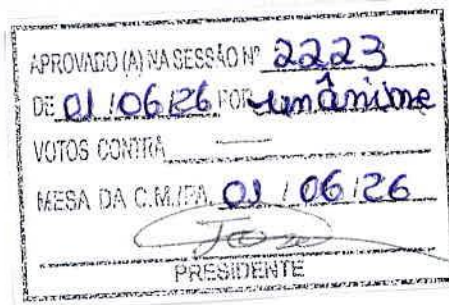 APROVADO (A) NA SESSÃO Nº 2223
DE 01/06/26 POR unânime
VOTOS CONTRA
MESA DA C.M./PA. 01/06/26
PRESIDENTE